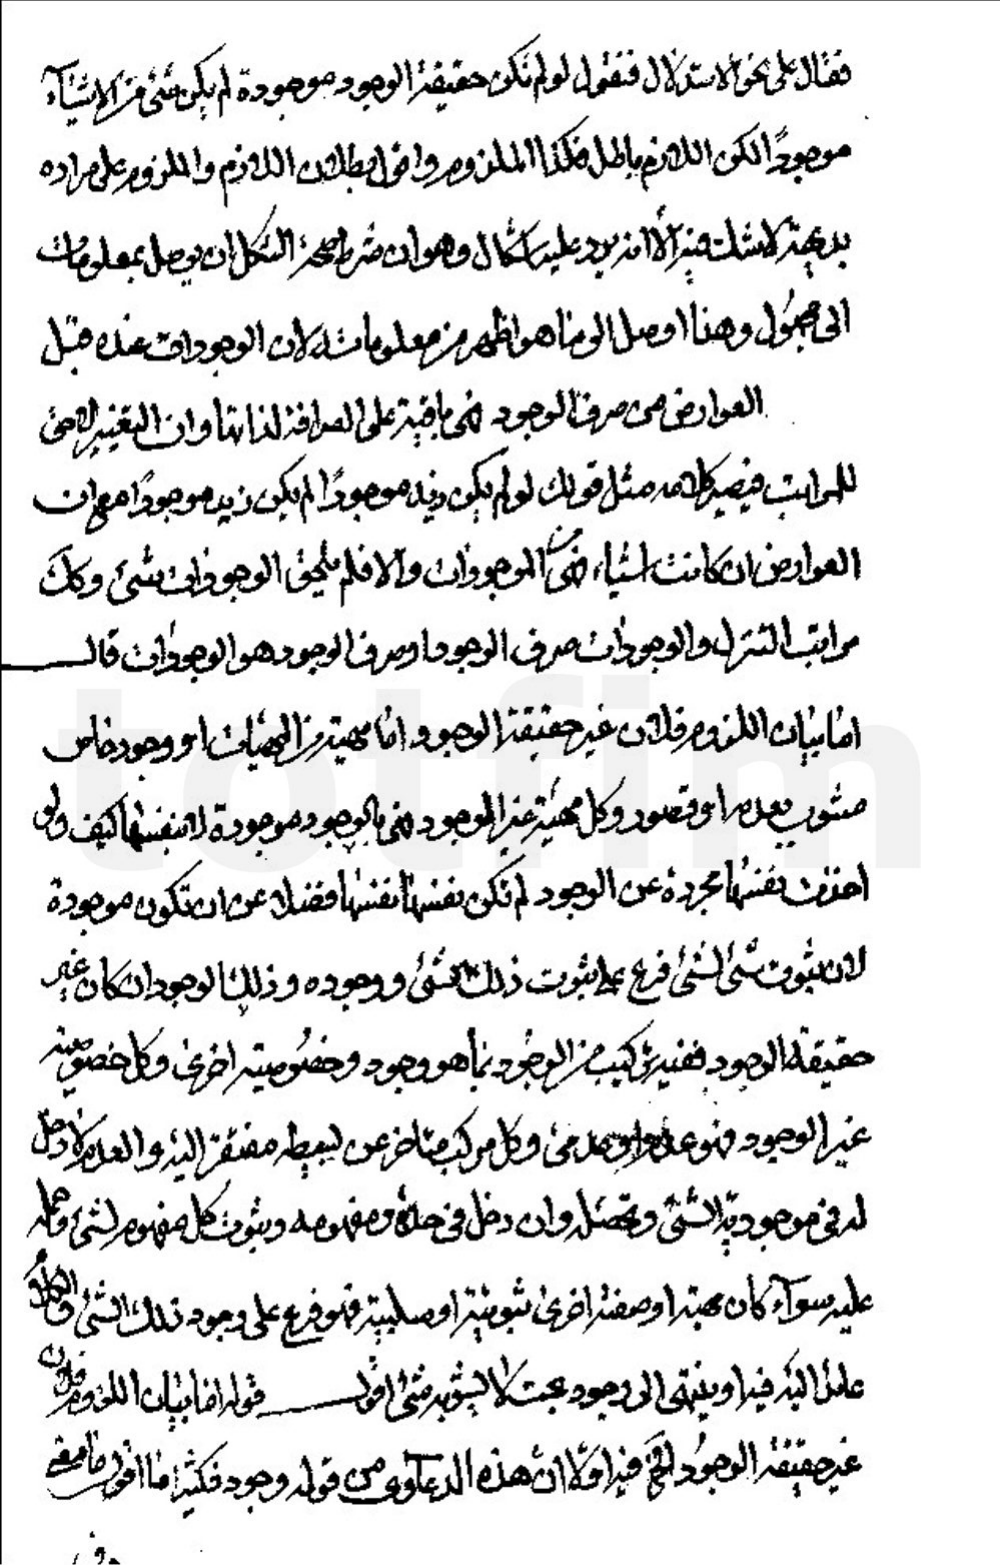 فقال على نحو الاستدلال فنقول لو لم تكن حقيقة الوجود موجودة لم يكن شئ من الاشياء
موجوداً لكن اللازم باطل فكذا الملزوم واقول بطلان اللازم والملزوم على مراده
بديهة لا شك فيه الا انه يرد عليه اشكال وهو ان شرط صحة الشكل ان يوصل بمعلومات
الى مجهول وهنا اوصل الى ما هو اظهر من معلوماته لان الوجودات عنده قبل
العوارض من صرف الوجود فهى باقية على الصرافة لذاتها وان التغيير لاحق
للمراتب فيصير كلامه مثل قولك لو لم يكن زيد موجوداً لم يكن زيد موجوداً مع ان
العوارض ان كانت اشياء فهى من الموجودات والا فلم يلحق الوجودات شئ وكك
مراتب التنزل والوجودات صرف الوجود او صرف الوجود هو الوجودات قال
امّا بيان اللزوم فلان غير حقيقة الوجود امّا مهية من المهيات او وجود خاص
مشوب بعدم او قصور وكل مهية غير الوجود فهى بالوجود موجودة لا بنفسها كيف ولو
اخذت نفسها مجردة عن الوجود لم تكن نفسها نفسها فضلا عن ان تكون موجودة
لان ثبوت شئ لشئ فرع على ثبوت ذلك الشئ ووجوده وذلك الوجود ان كان غير
حقيقة الوجود ففيه تركيب من الوجود بما هو وجود وخصوصية اخرى وكل خصوصية
غير الوجود فهو عدم او عدمى وكل مركب متاخر عن بسيطه مفتقر اليه والعدم لا دخل
له فى موجودية الشئ وتحصله وان دخل فى حده ومفهومه وثبوت كل مفهوم لشئ وحمله
عليه سوآء كان مهية او صفة اخرى ثبوتية او سلبية فهو فرع على وجود ذلك الشئ والكلام
عائد اليه فيدور او ينتهى الى وجود بحت لا يشوبه شئ اقول قوله امّا بيان اللزوم فلان
غير حقيقة الوجود الخ فيه اوّلا انّ هذه الدعاوى من قوله وجود فكثيراً ما اقول